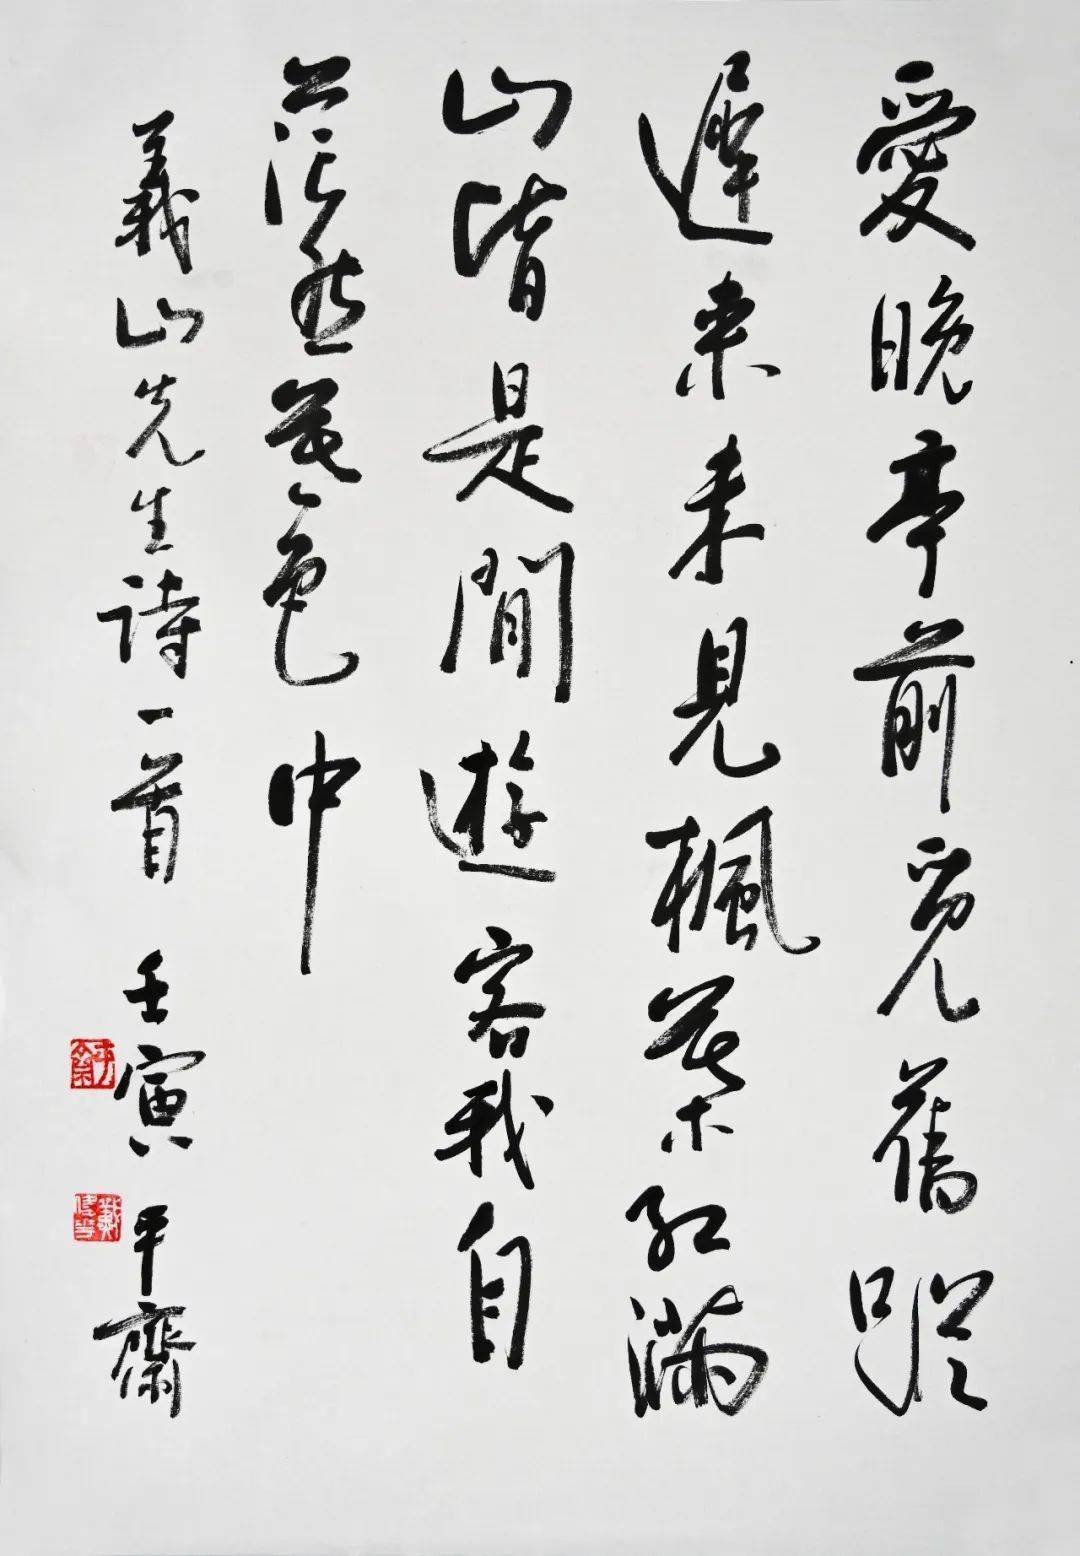 愛晚亭前覓舊蹤
遲來未見楓葉紅滿
山皆是閒遊客我自
茫然暮色中
義山先生詩一首 壬寅 平齋
平齋